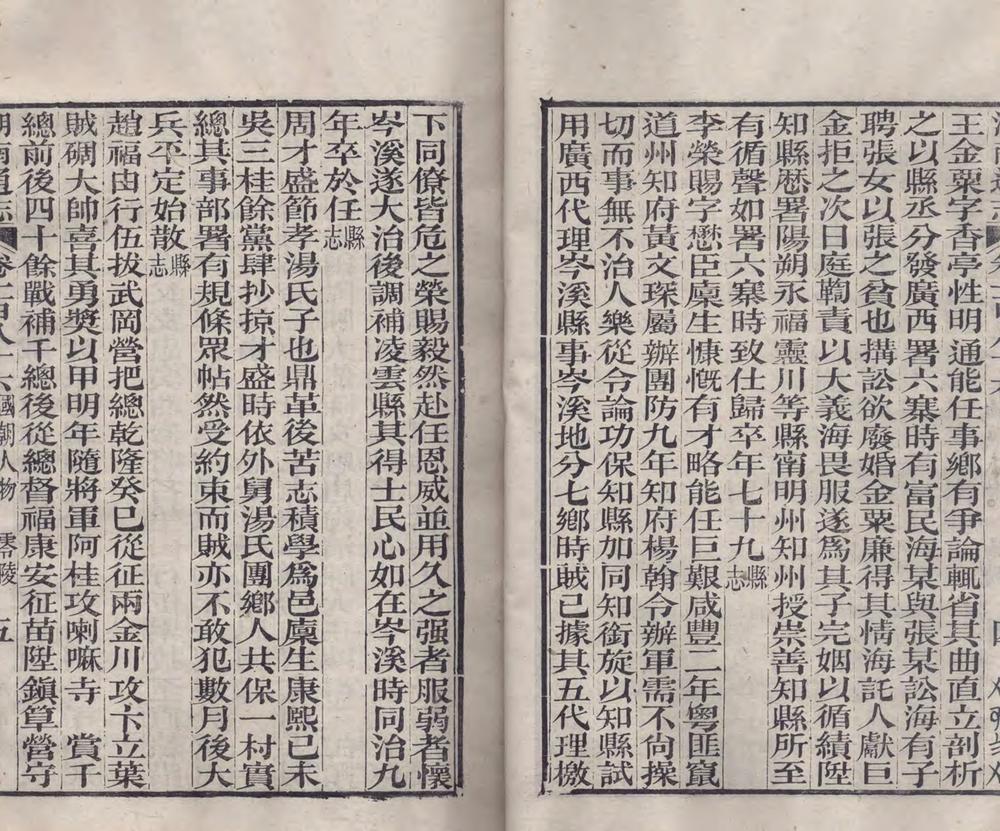 王金粟字香亭性明通能任事鄉有爭論輒省其曲直立剖析
之以縣丞分發廣西署六寨時有富民海某與張某訟海有子
聘張女以張之貧也搆訟欲廢婚金粟廉得其情海託人獻巨
金拒之次日庭鞫責以大義海畏服遂爲其子完姻以循績陞
知縣歷署陽朔永福靈川等縣甯明州知州授崇善知縣所至
有循聲如署六寨時致仕歸卒年七十九縣志
李榮賜字懋臣廩生慷慨有才略能任巨艱咸豐二年粵匪竄
道州知府黃文琛屬辦團防九年知府楊翰令辦軍需不尙操
切而事無不治人樂從令論功保知縣加同知銜旋以知縣試
用廣西代理岑溪縣事岑溪地分七鄉時賊已據其五代理檄
下同僚皆危之榮賜毅然赴任恩威並用久之强者服弱者懷
岑溪遂大治後調補凌雲縣其得士民心如在岑溪時同治九
年卒於任縣志
周才盛節孝湯氏子也鼎革後苦志積學爲邑廩生康熙己未
吳三桂餘黨肆抄掠才盛時依外舅湯氏團鄉人共保一村實
總其事部署有規條眾帖然受約束而賊亦不敢犯數月後大
兵平定始散縣志
趙福由行伍拔武岡營把總乾隆癸巳從征兩金川攻卞立葉
賊碉大帥喜其勇獎以甲明年隨將軍阿桂攻喇嘛寺 賞千
總前後四十餘戰補千總後從總督福康安征苗陞鎭筸營守
湖南通志 卷二百八十六國朝人物 零陵 五